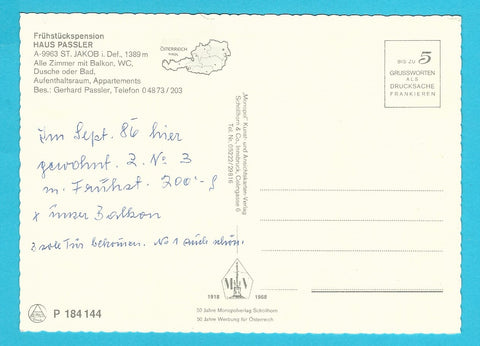 Frühstückspension
HAUS PASSLER
A-9963 ST. JAKOB i. Def., 1389 m
Alle Zimmer mit Balkon, WC,
Dusche oder Bad,
Aufenthaltsraum, Appartements
Bes.: Gerhard Passler, Telefon 0 48 73 / 203
ÖSTERREICH
BIS ZU 5
GRUSSWORTEN
ALS
DRUCKSACHE
FRANKIEREN
Im Sept. 86 hier
gewohnt. Z. No 3
m. Frühst. 200.- S
x unser Balkon
Tür bekommen. No 1 Auch schön.
„Monopol" Kunst- und Ansichtskarten-Verlag
Schöllhorn & Co., Innsbruck, Colingasse 6
Tel. Nr. 05222/29816
1918 1968
50 Jahre Monopolverlag Schöllhorn
50 Jahre Werbung für Österreich
P 184 144